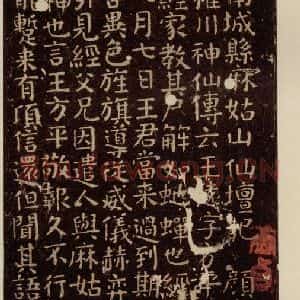 南城縣麻姑山仙壇記顏
稚川神仙傳云王遠字方平
經家教其尸解如蛇蟬也經
月七日王君當來過到期
各異色旌旗導從威儀赫弈
引見經父兄因遣人與麻姑
神也言王方平敬報久不行
能暫來有頃信還但聞其語